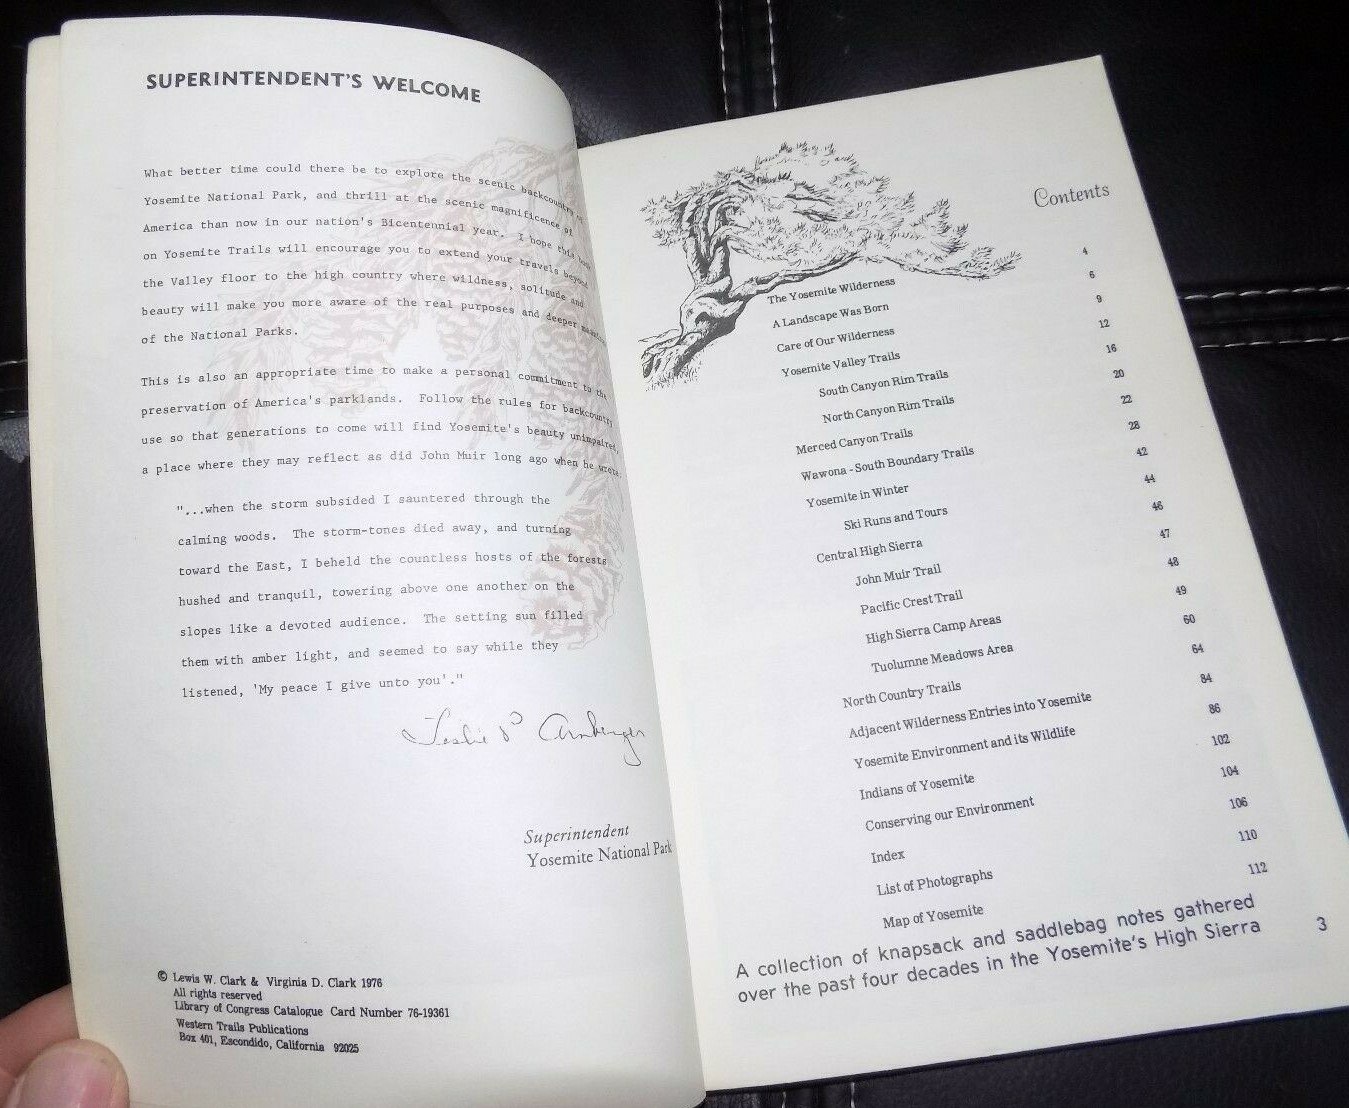 SUPERINTENDENT'S WELCOME
What better time could there be to explore the scenic backcountry of
Yosemite National Park, and thrill at the scenic magnificence of
America than now in our nation's Bicentennial year. I hope this book
on Yosemite Trails will encourage you to extend your travels beyond
the Valley floor to the high country where wildness, solitude and
beauty will make you more aware of the real purposes and deeper
of the National Parks.
This is also an appropriate time to make a personal commitment to the
preservation of America's parklands. Follow the rules for backcountry
use so that generations to come will find Yosemite's beauty unimpaired,
a place where they may reflect as did John Muir long ago when he wrote:
"...when the storm subsided I sauntered through the
calming woods. The storm-tones died away, and turning
toward the East, I beheld the countless hosts of the forests
hushed and tranquil, towering above one another on the
slopes like a devoted audience. The setting sun filled
them with amber light, and seemed to say while they
listened, 'My peace I give unto you'."
Leslie P Arnberger
Superintendent
Yosemite National Park
© Lewis W. Clark & Virginia D. Clark 1976
All rights reserved
Library of Congress Catalogue Card Number 76-19361
Western Trails Publications
Box 401, Escondido, California 92025
Contents
The Yosemite Wilderness 4
A Landscape Was Born 6
Care of Our Wilderness 9
Yosemite Valley Trails 12
South Canyon Rim Trails 16
North Canyon Rim Trails 20
Merced Canyon Trails 22
Wawona - South Boundary Trails 28
Yosemite in Winter 42
Ski Runs and Tours 44
Central High Sierra 46
John Muir Trail 47
Pacific Crest Trail 48
High Sierra Camp Areas 49
Tuolumne Meadows Area 60
North Country Trails 64
Adjacent Wilderness Entries into Yosemite 84
Yosemite Environment and its Wildlife 86
Indians of Yosemite 102
Conserving our Environment 104
Index 106
List of Photographs 110
Map of Yosemite 112
A collection of knapsack and saddlebag notes gathered
over the past four decades in the Yosemite's High Sierra
3